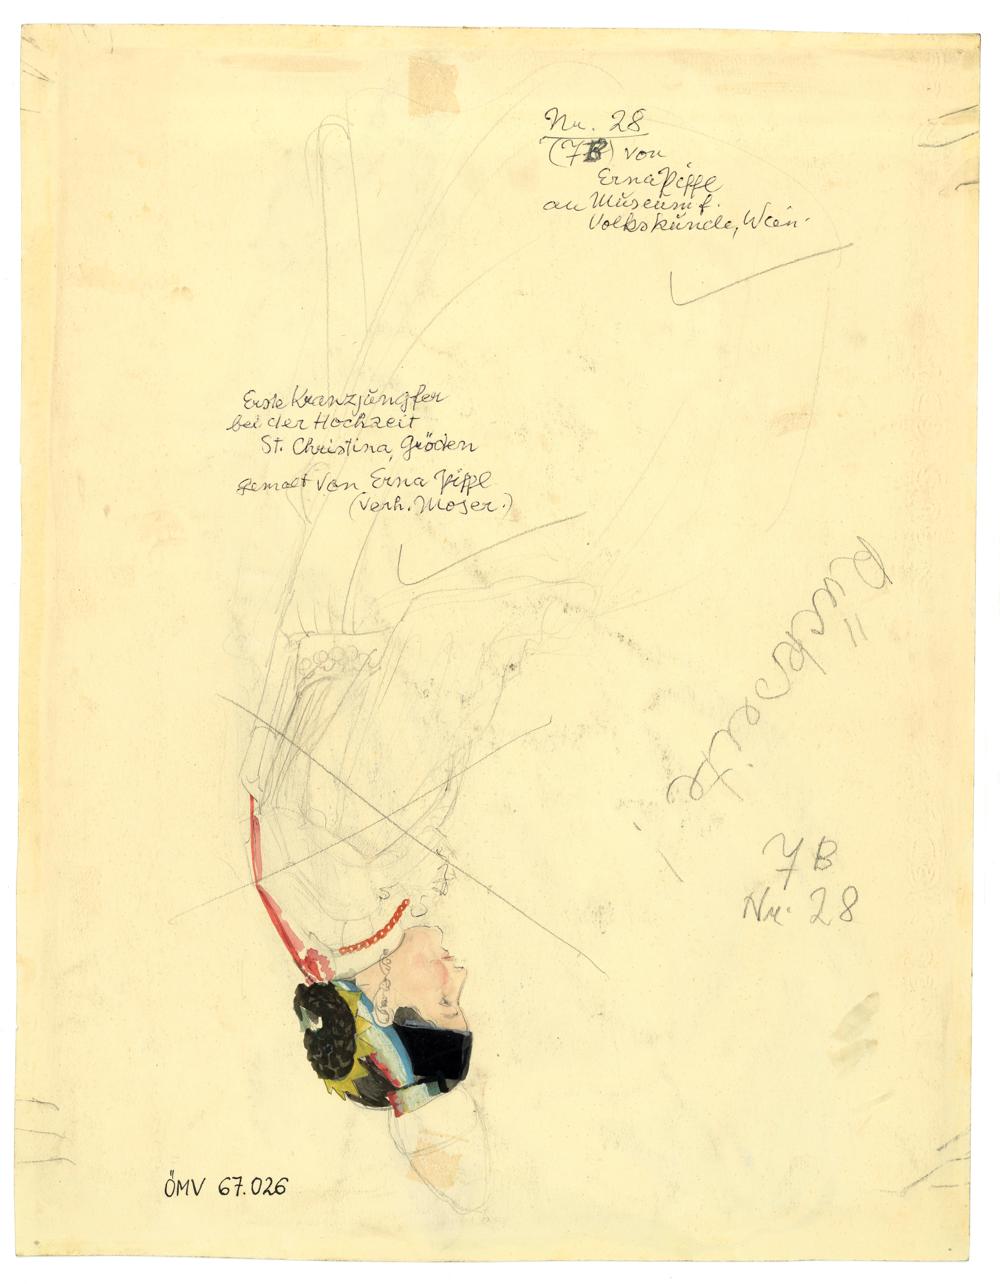 Nr. 28
(7B) von
Erna Piffl
an Museum f.
Volkskunde, Wien.
Erste Kranzjungfer
bei der Hochzeit
St. Christina, Gröden
gemalt von Erna Piffl
(verh. Moser.)
Rückseite
7B
Nr. 28
ÖMV 67.026